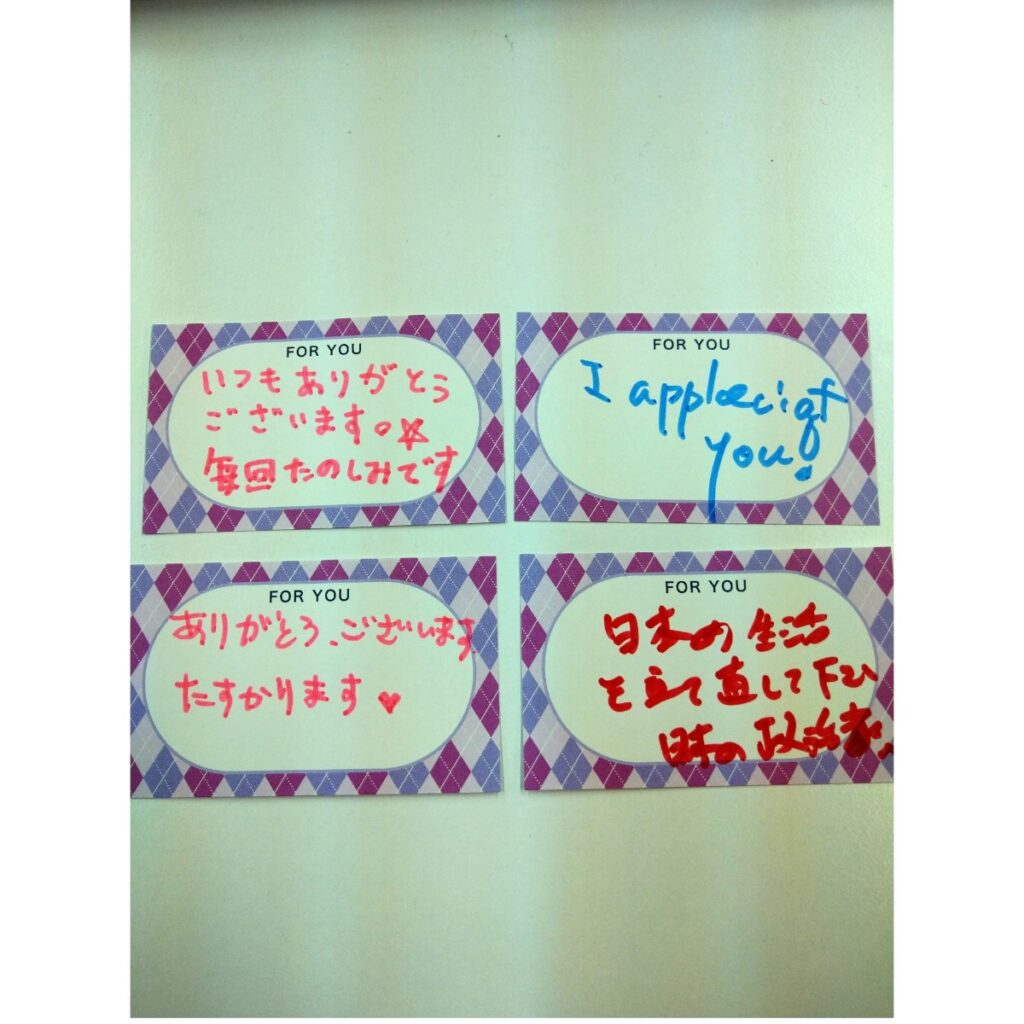 FOR YOU
いつもありがとう
ございます。☆
毎回たのしみです
FOR YOU
I appleciat
you!
FOR YOU
ありがとう、ございます。
たすかります♥
FOR YOU
日本の生活
を立て直して下さい
日本の政治者、